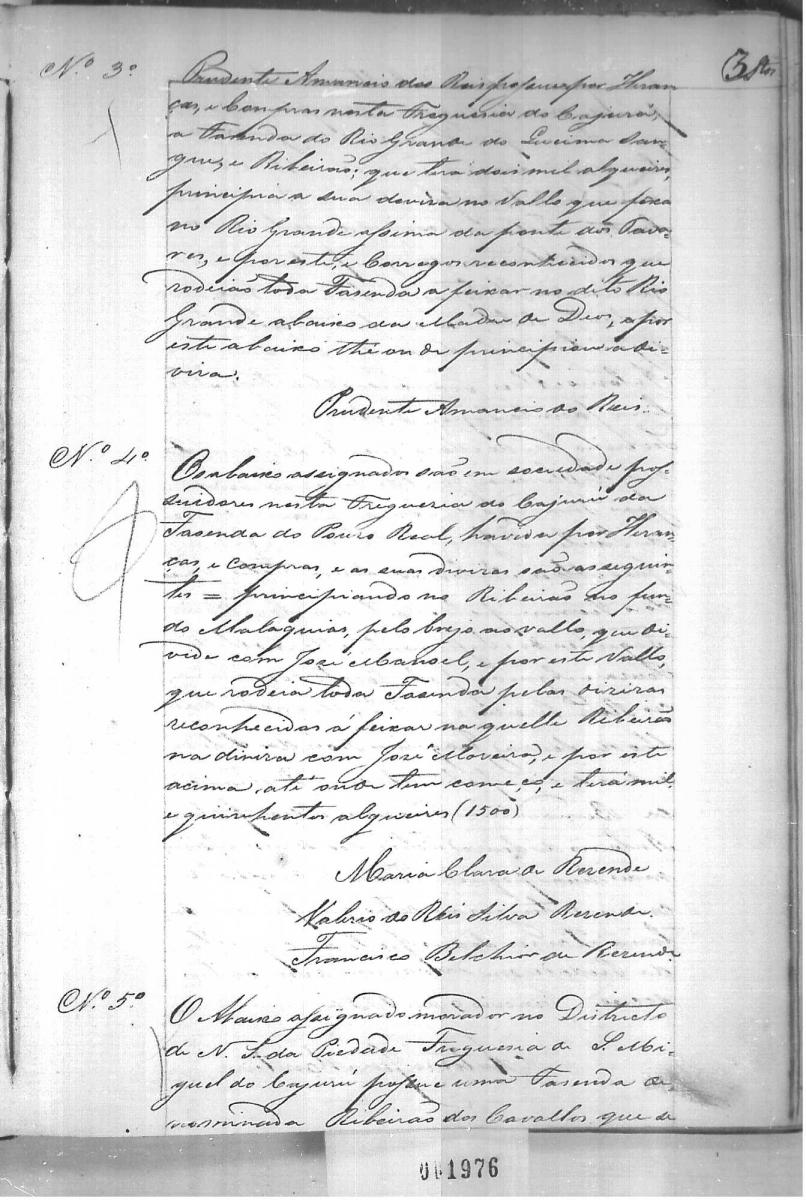 3
N.º 3º
Prudente Amancio dos Reis possue por Heran-
ças, e Compras nesta Freguesia do Cajurú,
a Fasenda do Rio Grande do
e Ribeirão; que terá dois mil alqueires,
principia a sua devira no Vallo que feixa
no Rio Grande assima da ponte dos Tava-
res, e por este, e Corregos reconhecidos que
rodeião toda Fasenda a feixar no dito Rio
Grande abaixo da Madre de Deos, e por
este abaixo thé onde principiou a di-
vira.
Prudente Amancio do Reis.
N.º 4º
Os abaixo assignados são em sociedade pos-
suidores nesta Freguezia do Cajurú da
Fasenda do Pouzo Real, havida por Heran-
ças, e compras, e as suas diviras são as seguin-
tes = principiando no Ribeirão no fun-
do Malaquias, pelo brejo ao vallo, que di-
vide com José Manoel, e por este Vallo,
que rodeia toda Fasenda pelas
reconhecidas á feixar naquelle Ribeirão
na divira com José Moreira, e por este
acima, até onde tem começo, e terá mil
e quinhentos alqueires (1500)
Maria Clara de Rezende
Valerio do Reis Silva Rezende.
Francisco Belchior de Rezende
N.º 5º
O Abaixo assignado morador no Districto
de N. S. da Piedade Freguesia de S. Mi-
guel do Cajurú possue uma Fasenda de-
nominada Ribeirão dos Cavallos que de
001976